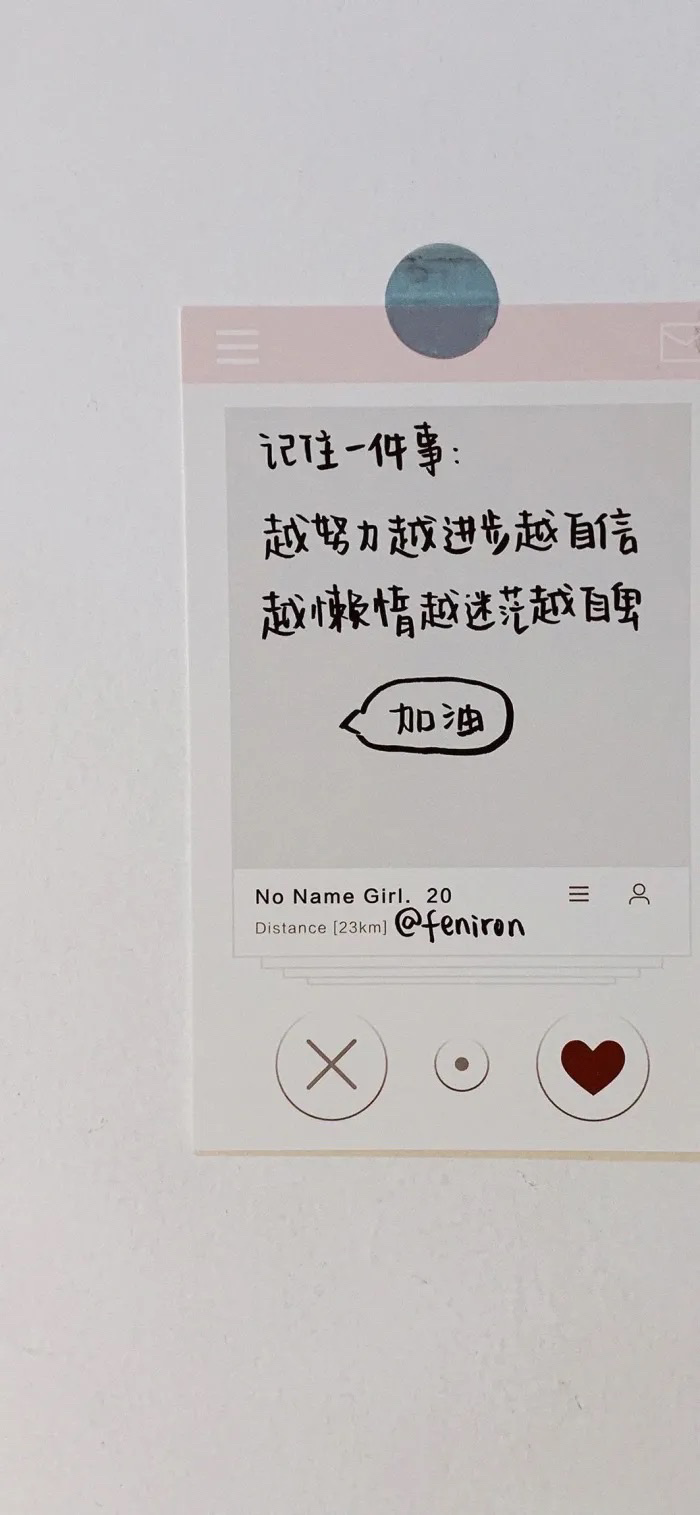 记住一件事:
越努力越进步越自信
越懒惰越迷茫越自卑
加油
No Name Girl. 20
Distance [23km] @feniron